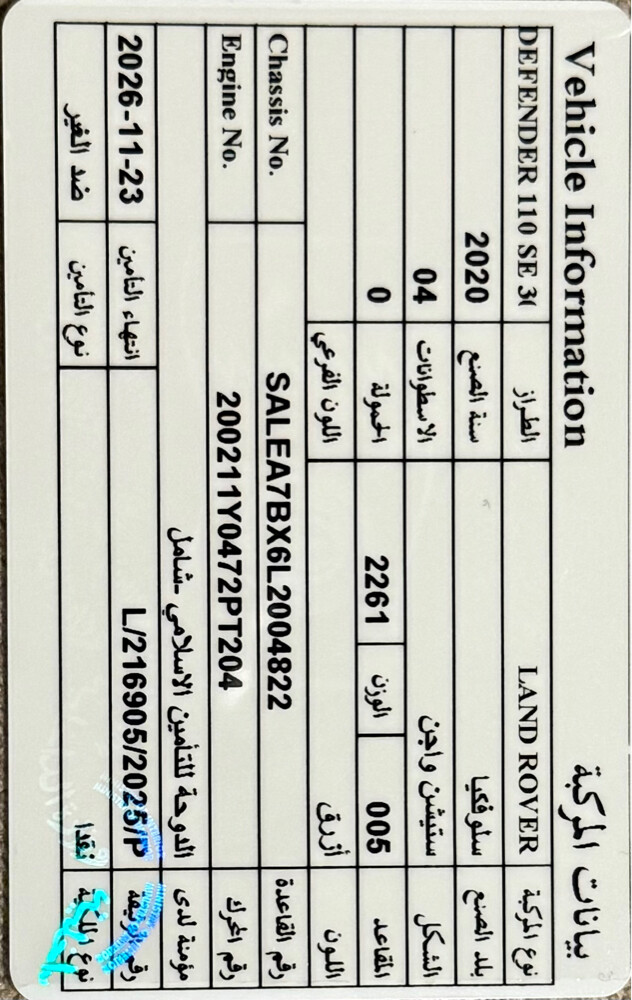 Vehicle Information بيانات المركبة
DEFENDER 110 SE 3( الطراز LAND ROVER نوع المركبة
2020 سنة الصنع سلوفكيا بلد الصنع
04 الاسطوانات استيشن واجن الشكل
0 الحمولة 2261 الوزن 005 المقاعد
اللون الفرعي أزرق اللون
Chassis No. SALEA7BX6L2004822 رقم القاعدة
Engine No. 200211Y0472PT204 رقم المحرك
الدوحة للتأمين الاسلامي -شامل مؤمنة لدى
2026-11-23 انتهاء التامين L/216905/2025/P رقم الوثيقة
ضد الغير نوع التامين نقدا نوع الملكية